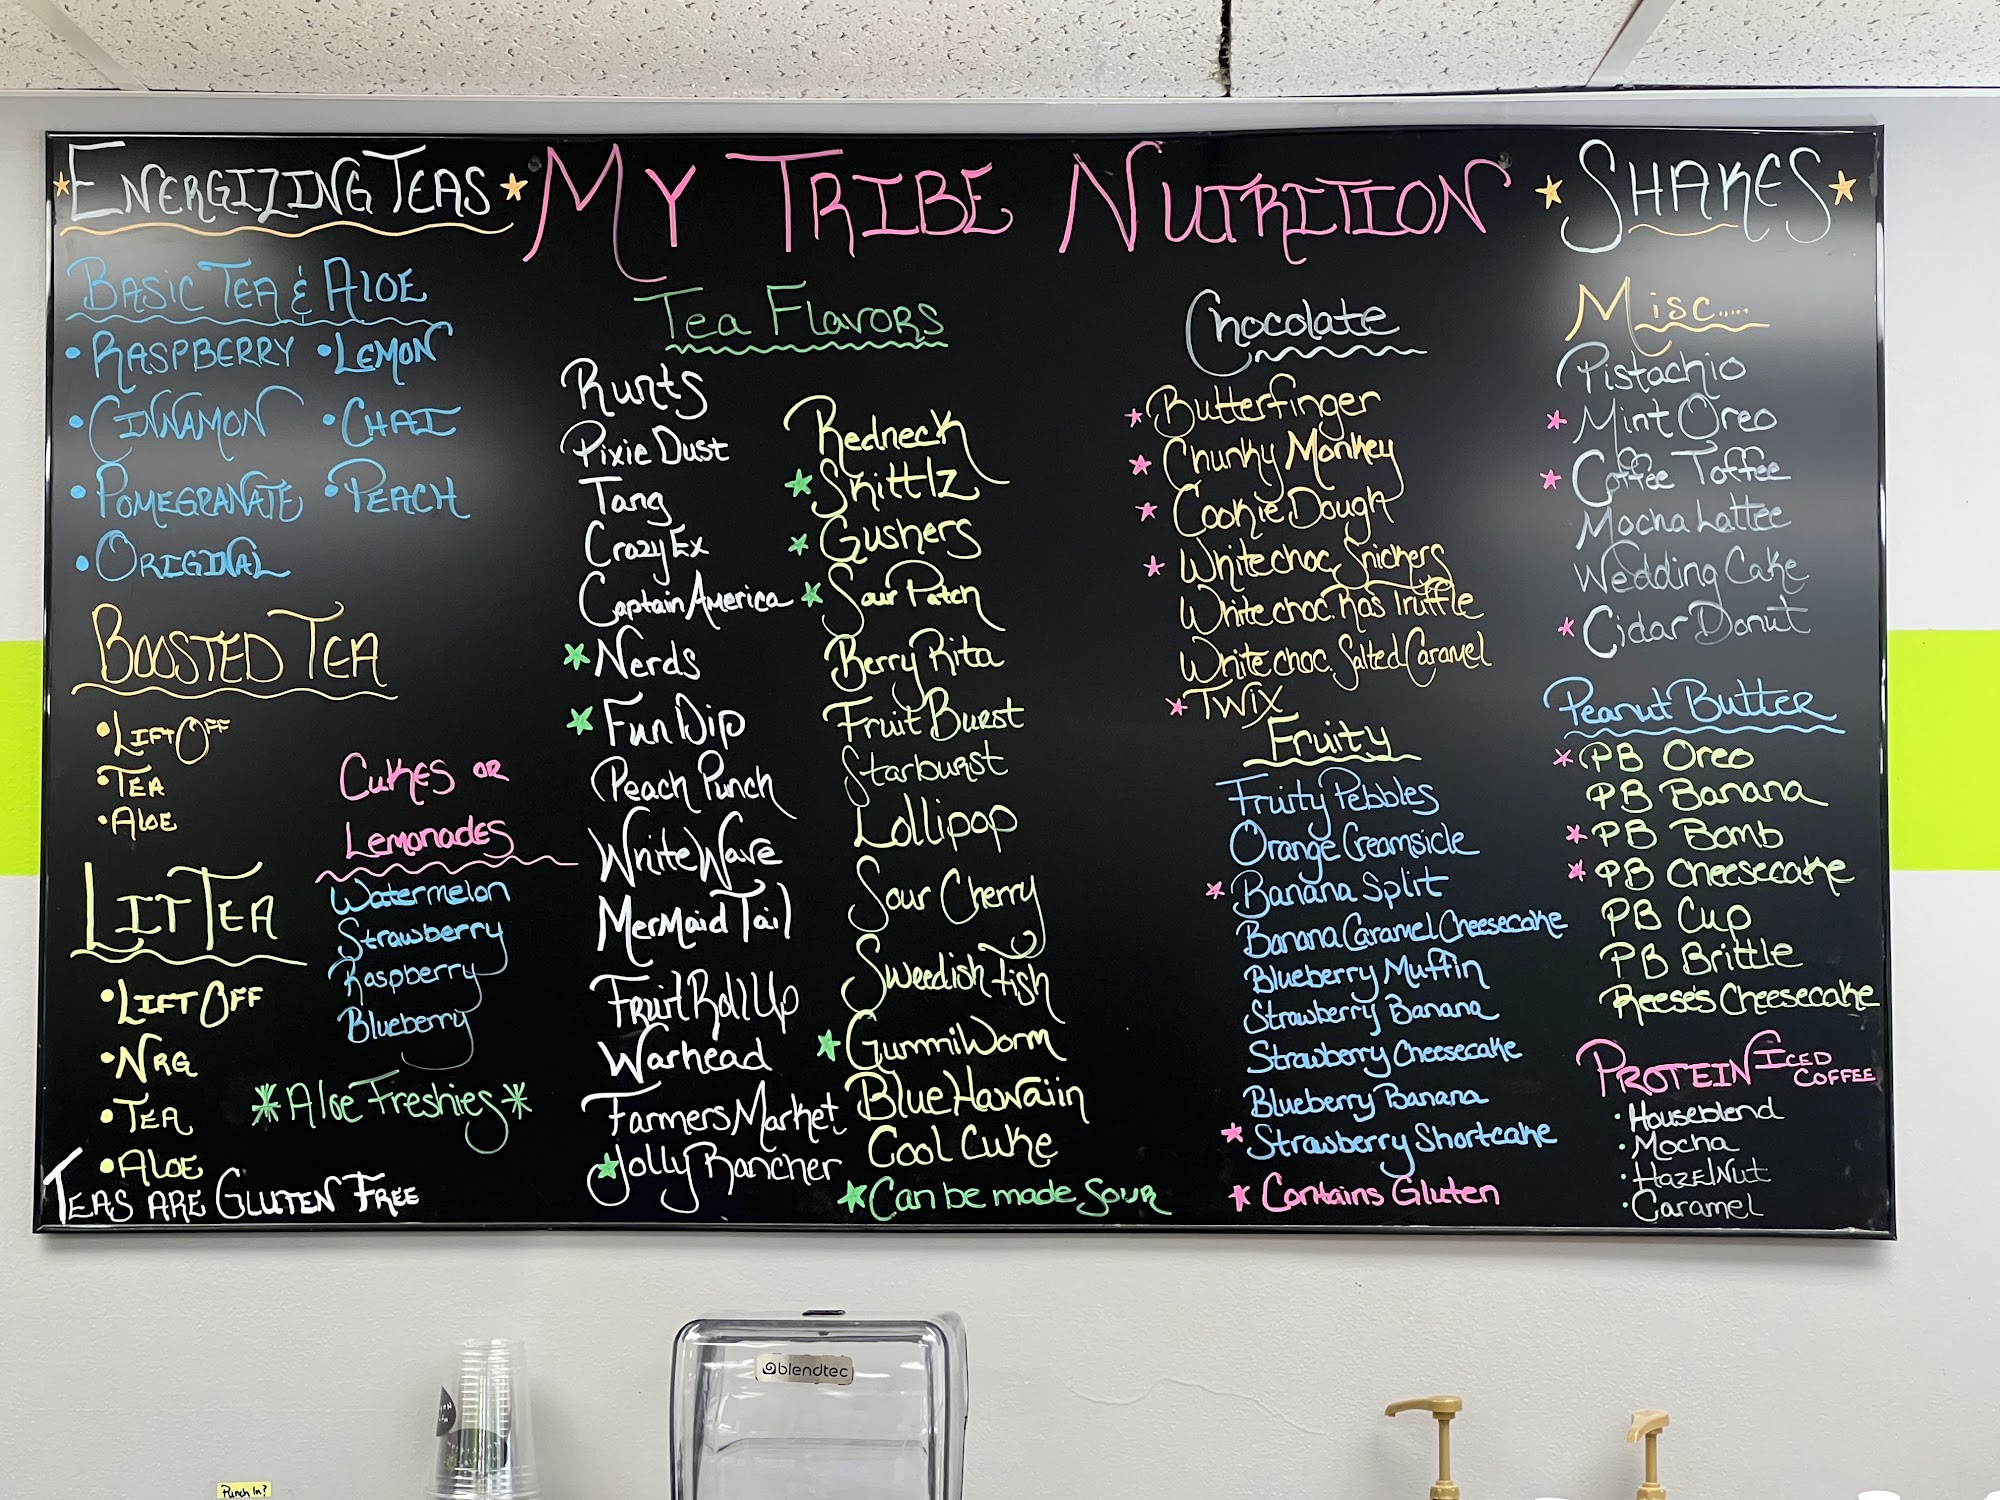 ENERGIZING TEAS
BASIC TEA & ALOE
• RASPBERRY • LEMON
• CINNAMON • CHAI
• POMEGRANATE • PEACH
• ORIGINAL
BOOSTED TEA
• LIFT OFF
• TEA
• ALOE
LIT TEA
• LIFT OFF
• NRG
• TEA
• ALOE
CUKES OR
LEMONADES
Watermelon
Strawberry
Raspberry
Blueberry
* Aloe Freshies *
TEAS ARE GLUTEN FREE
MY TRIBE NUTRITION
Tea Flavors
Runts
Pixie Dust
Tang
Crazy Ex
Captain America
Nerds
Fun Dip
Peach Punch
White Wave
Mermaid Tail
Fruit Roll Up
Warhead
Farmers Market
Jolly Rancher
Redneck
Skittlz
Gushers
Sour Patch
Berry Rita
Fruit Burst
Starburst
Lollipop
Sour Cherry
Sweedish Fish
Gummi Worm
Blue Hawaiin
Cool Cuke
Can be made Sour
Chocolate
Butterfinger
Chunky Monkey
Cookie Dough
White choc. Snickers
White choc. Ras Truffle
White choc. Salted Caramel
Twix
Fruity
Fruity Pebbles
Orange Creamsicle
Banana Split
Banana Caramel Cheesecake
Blueberry Muffin
Strawberry Banana
Strawberry Cheesecake
Blueberry Banana
Strawberry Shortcake
Contains Gluten
SHAKES
Misc.....
Pistachio
Mint Oreo
Coffee Toffee
Mocha Lattee
Wedding Cake
Cidar Donut
Peanut Butter
PB Oreo
PB Banana
PB Bomb
PB Cheesecake
PB Cup
PB Brittle
Reese's Cheesecake
PROTEIN ICED COFFEE
• Houseblend
• Mocha
• HazelNut
• Caramel
blendtec
Punch In?